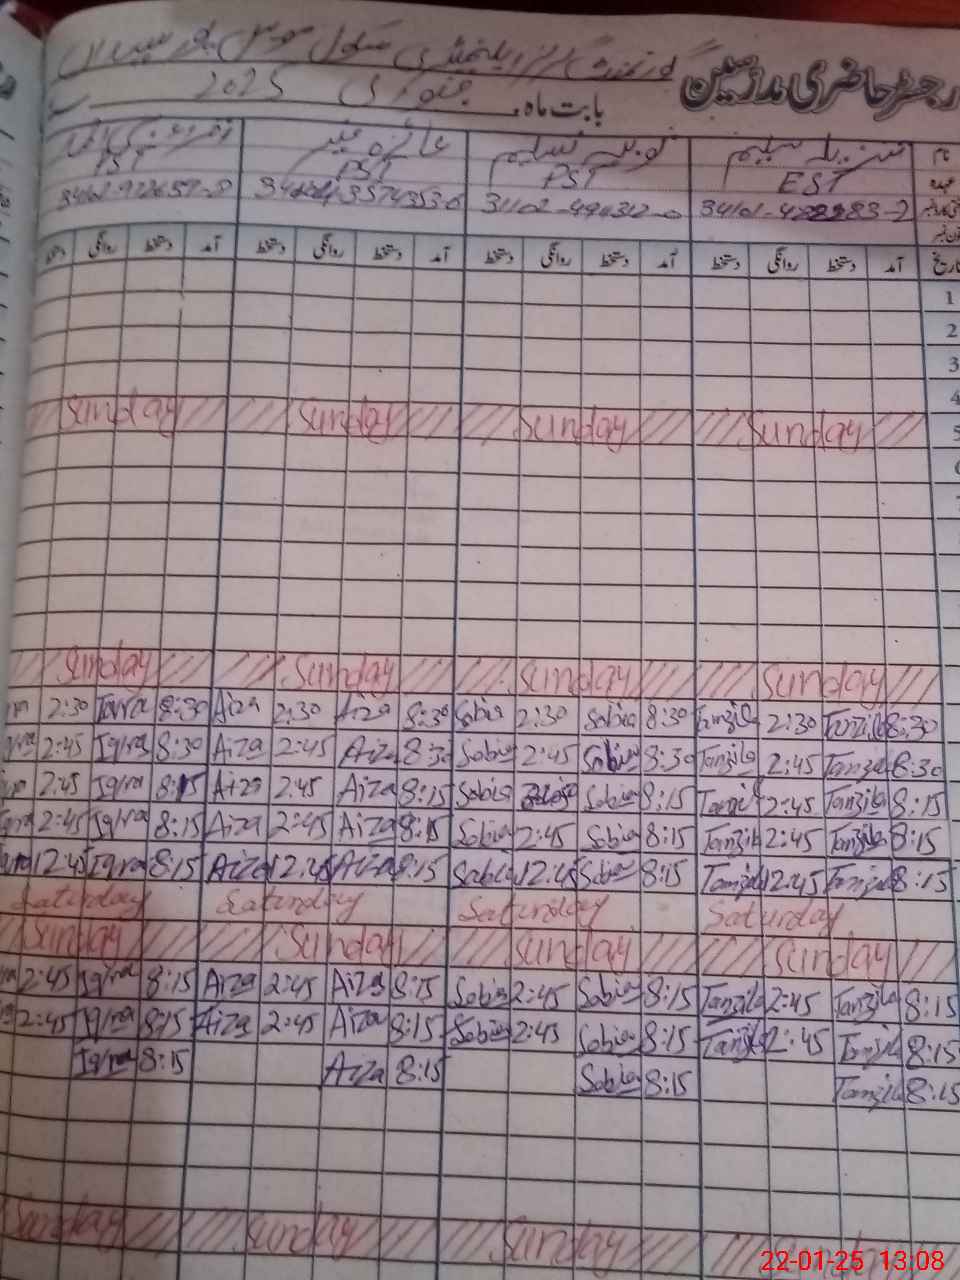 رجسٹر حاضری مدرسین
بابت ماہ جنوری 2025
نام
عہدہ
EST PST PST PST
تاریخ آمد دستخط روانگی دستخط آمد دستخط روانگی دستخط آمد دستخط روانگی دستخط آمد دستخط روانگی
1
2
3
4
Sunday Sunday Sunday Sunday 5
Sunday Sunday Sunday Sunday
2:30 Iqra 8:30 Aiza 2:30 Aiza 8:30 Sobia 2:30 Sobia 8:30 Tanzila 2:30 Tanzila 8:30
2:45 Iqra 8:30 Aiza 2:45 Aiza 8:30 Sobia 2:45 Sobia 8:30 Tanzila 2:45 Tanzila 8:30
2:45 Iqra 8:15 Aiza 2:45 Aiza 8:15 Sobia Sobia 8:15 Tanzila 2:45 Tanzila 8:15
2:45 Iqra 8:15 Aiza 2:45 Aiza 8:15 Sobia 2:45 Sobia 8:15 Tanzila 2:45 Tanzila 8:15
12:45 Iqra 8:15 Aiza 12:45 Aiza 8:15 Sobia 12:45 Sobia 8:15 Tanzila 12:45 Tanzila 8:15
Saturday Saturday Saturday Saturday
Sunday Sunday Sunday Sunday
2:45 Iqra 8:15 Aiza 2:45 Aiza 8:15 Sobia 2:45 Sobia 8:15 Tanzila 2:45 Tanzila 8:15
2:45 Iqra 8:15 Aiza 2:45 Aiza 8:15 Sobia 2:45 Sobia 8:15 Tanzila 2:45 Tanzila 8:15
Iqra 8:15 Aiza 8:15 Sobia 8:15 Tanzila 8:15
Sunday Sunday Sunday Sunday
22-01-25 13:08